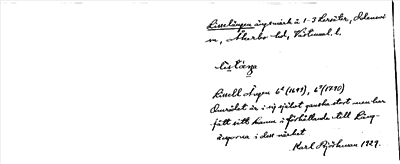 Lisselängen ängsmark à 1-3 Lersäter, Irlensås
sn, Åkerbo hd, Västmanl. l.
lìstäŋa
Lissell Ängen 6ᵈ (1691), 6ᵈ (1790)
Området är i sig självt ganska stort men har
fått sitt namn i förhållande till Läng-
ängarna i dess närhet
Karl Björkman 1929.